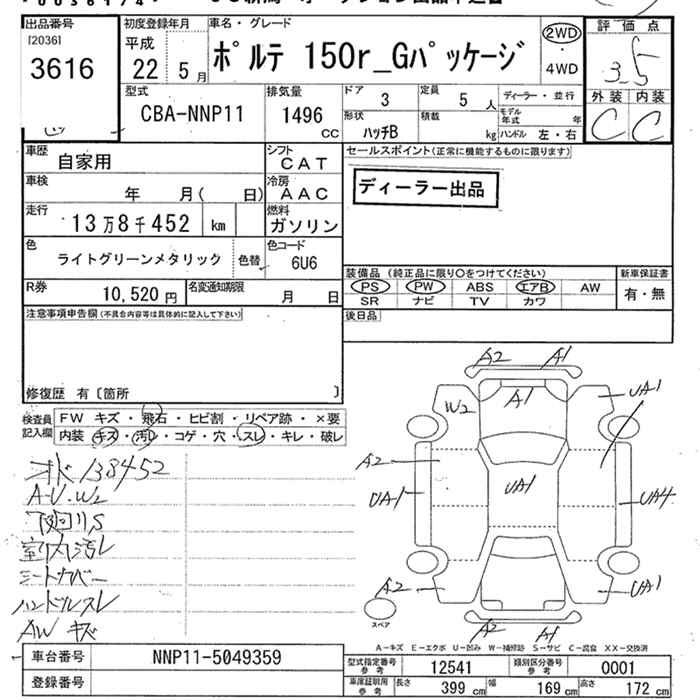 出品番号
[2036]
3616
初度登録年月
平成
22年 5月
車名・グレード
ポルテ 150r_Gパッケージ
2WD
・
4WD
評価点
3.5
外装 内装
C C
型式
CBA-NNP11
排気量
1496 CC
ドア
3
定員
5人
ディーラー・並行
形状
ハッチB
積載
kg
モデル年式 年
ハンドル 左・右
車歴
自家用
シフト
CAT
車検
年 月( 日)
冷房
AAC
走行
13万8千452 km
燃料
ガソリン
色
ライトグリーンメタリック
色替
色コード
6U6
R券
10,520円
名変通知期限
月 日
セールスポイント(正常に機能するものに限ります)
ディーラー出品
装備品 (純正品に限り○をつけてください)
PS PW ABS エアB AW
SR ナビ TV カワ
新車保証書
有・無
後日品
注意事項申告欄(不具合内容等は具体的に記入して下さい)
修復歴 有〔箇所 〕
検査員記入欄
FW キズ・飛石・ヒビ割・リペア跡・×要
内装 キズ・汚れ・コゲ・穴・スレ・キレ・破レ
138452
A・U・W2
下廻りS
室内汚レ
シートカバー
ハンドルスレ
AW キズ
A2 A1
W2 A1 UA1
A2
UA1 UA1 UA4
A2 UA1
スペア
A2 A1
A-キズ E-エクボ U-凹み W-補修跡 S-サビ C-腐食 XX-交換済
車台番号
NNP11-5049359
登録番号
型式指定番号 参考
12541
類別区分番号 参考
0001
車庫証明用 参考
長さ 399 cm 幅 169 cm 高さ 172 cm